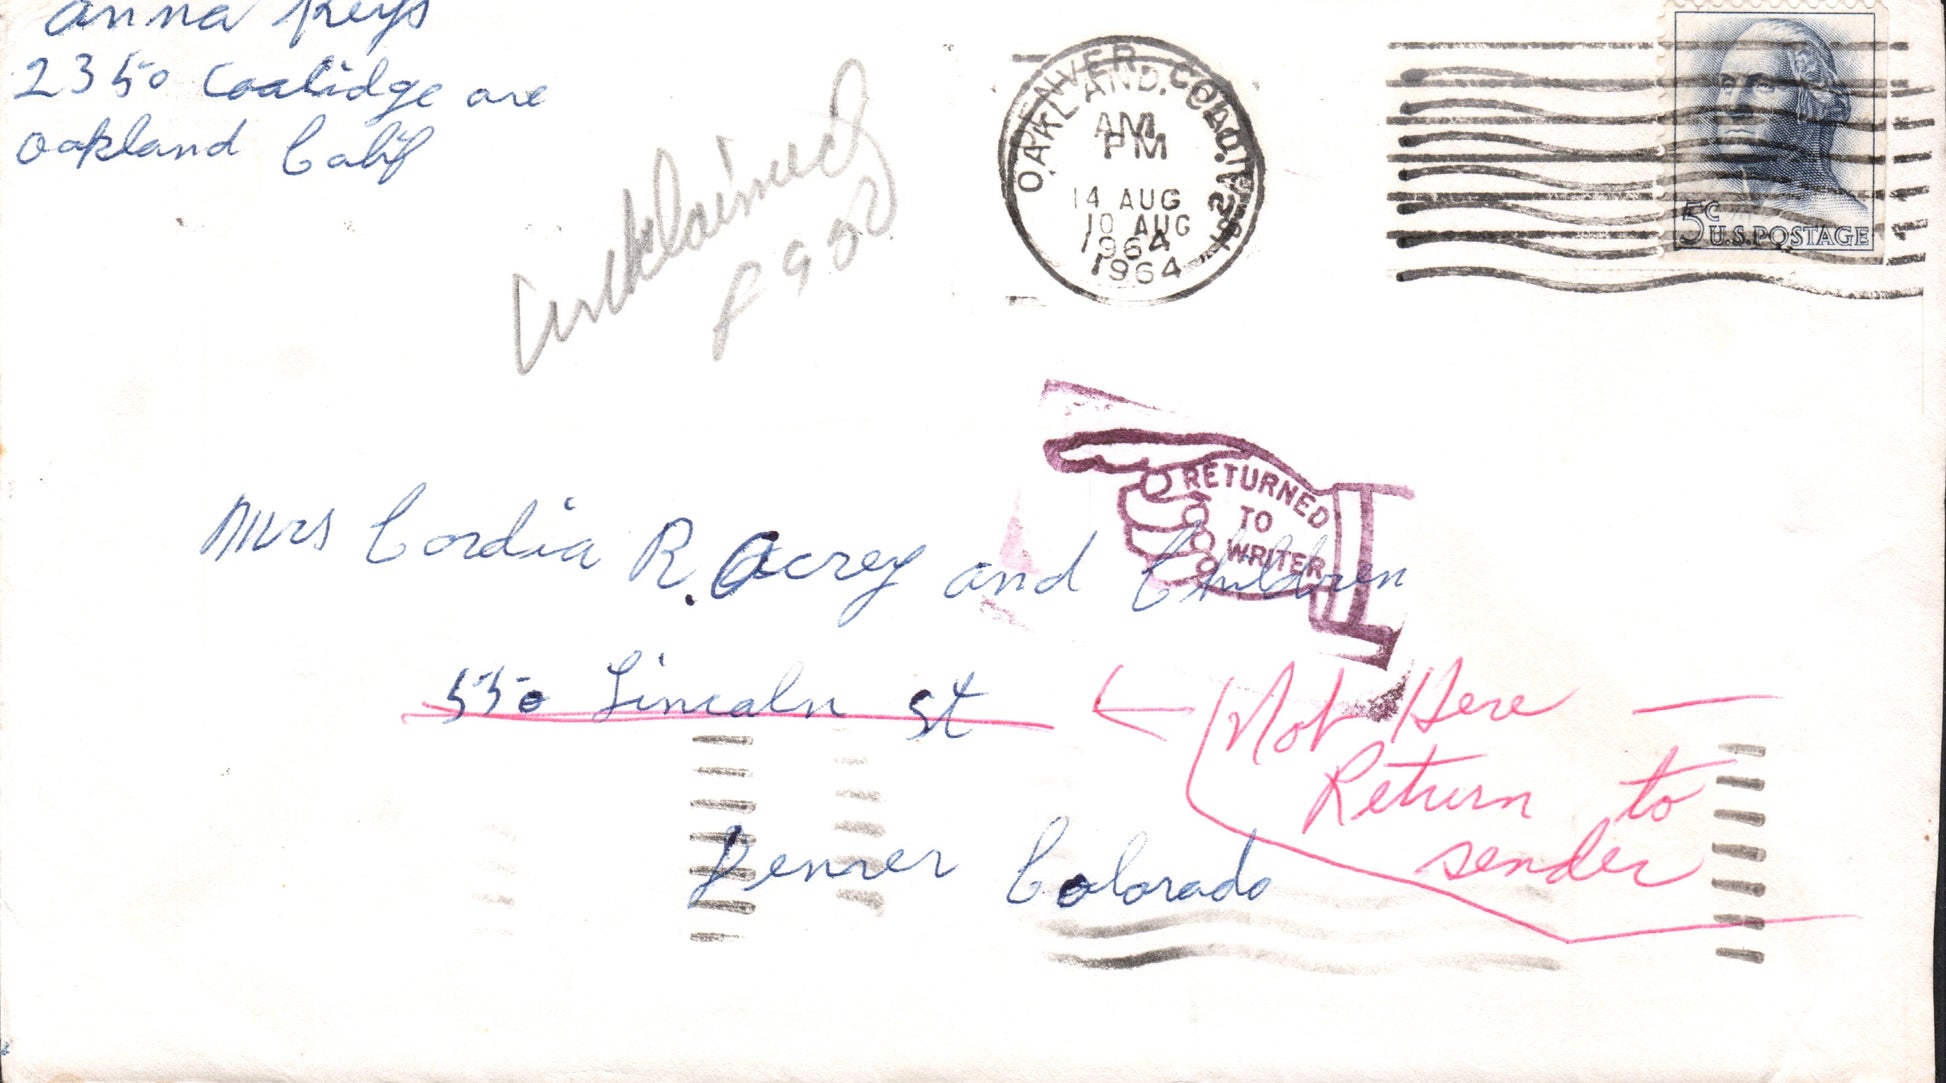 Anna Keys
2350 Coalidge ave
Oakland Calif
unklaimed
OAKLAND, CALIF.
DENVER, COLO.
AM
PM
14 AUG
10 AUG
1964
1964
5¢
U.S. POSTAGE
RETURNED
TO
WRITER
Mrs Cordia R. Acrey and Children
550 Lincaln St
Not Here
Return to
sender
Denver Colorado